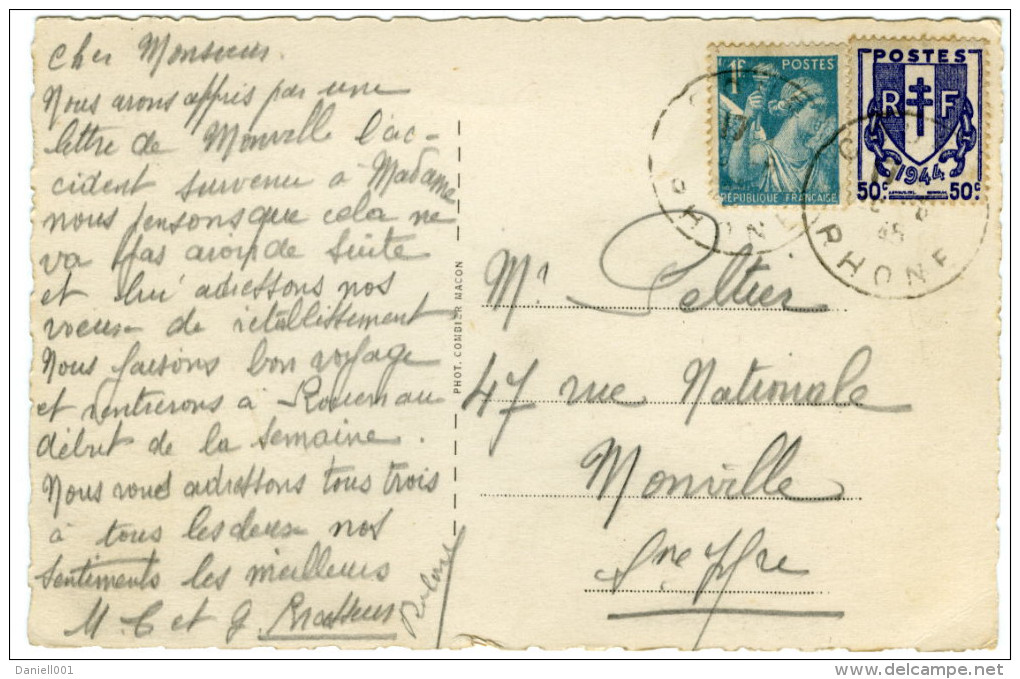 Cher Monsieur.
Nous avons appris par une
lettre de Monville l'ac-
cident survenu à Madame
nous pensons que cela ne
va pas avoir de suite
et lui adressons nos
voeux de rétablissement
Nous faisons bon voyage
et rentrerons à Rouen au
début de la semaine.
Nous vous adressons tous trois
à tous les deux nos
sentiments les meilleurs
M. C et G.
PHOT. COMBIER MACON
1F POSTES
RÉPUBLIQUE FRANÇAISE
POSTES
RF
1944
50c 50c
17
RHONE
45
RHONE
Mr Peltier
47 rue Nationale
Monville
Sne Ifre
Daniell001
delcampe.net